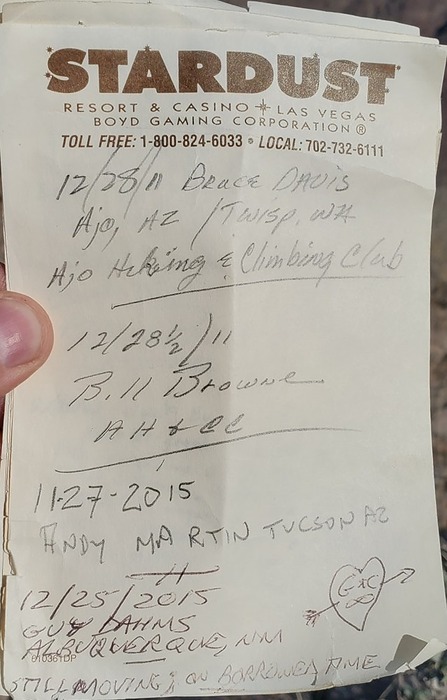 STARDUST
RESORT & CASINO LAS VEGAS
BOYD GAMING CORPORATION ®
TOLL FREE: 1-800-824-6033 • LOCAL: 702-732-6111
12/28/11 Bruce DAVIS
Ajo, AZ / Twisp, WA
Ajo Hiking & Climbing Club
12/28½/11
Bill Browne
AH & CC
11-27-2015
ANDY MARTIN TUCSON AZ
12/25/2015
GUY DAHMS
ALBUQUERQUE, NM
G+C
010361DP
STILL MOVING; ON BORROWED TIME